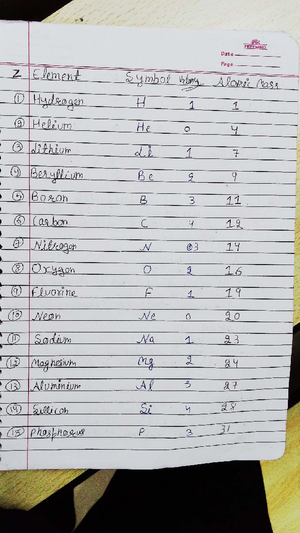 Date
Page
Z Element Symbol Atomic Mass
① Hydrogen H 1 1
② Helium He 0 4
③ Lithium Li 1 7
④ Beryllium Be 2 9
⑤ Boron B 3 11
⑥ Carbon C 4 12
⑦ Nitrogen N 3 14
⑧ Oxygen O 2 16
⑨ Fluorine F 1 19
⑩ Neon Ne 0 20
⑪ Sodium Na 1 23
⑫ Magnesium Mg 2 24
⑬ Aluminium Al 3 27
⑭ Sillicon Si 4 28
⑮ Phosphorus P 3 31